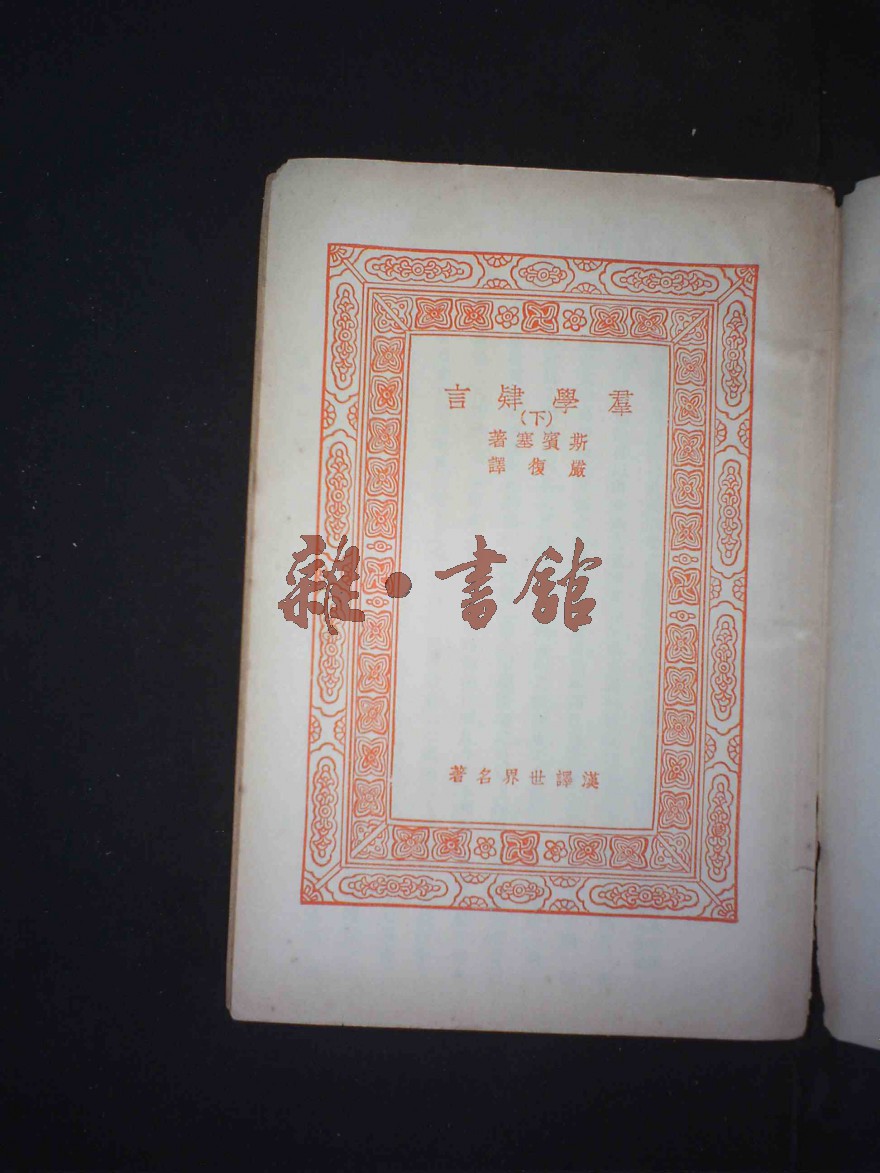 羣學肄言
(下)
斯賓塞著
嚴復譯
雜·書館
漢譯世界名著